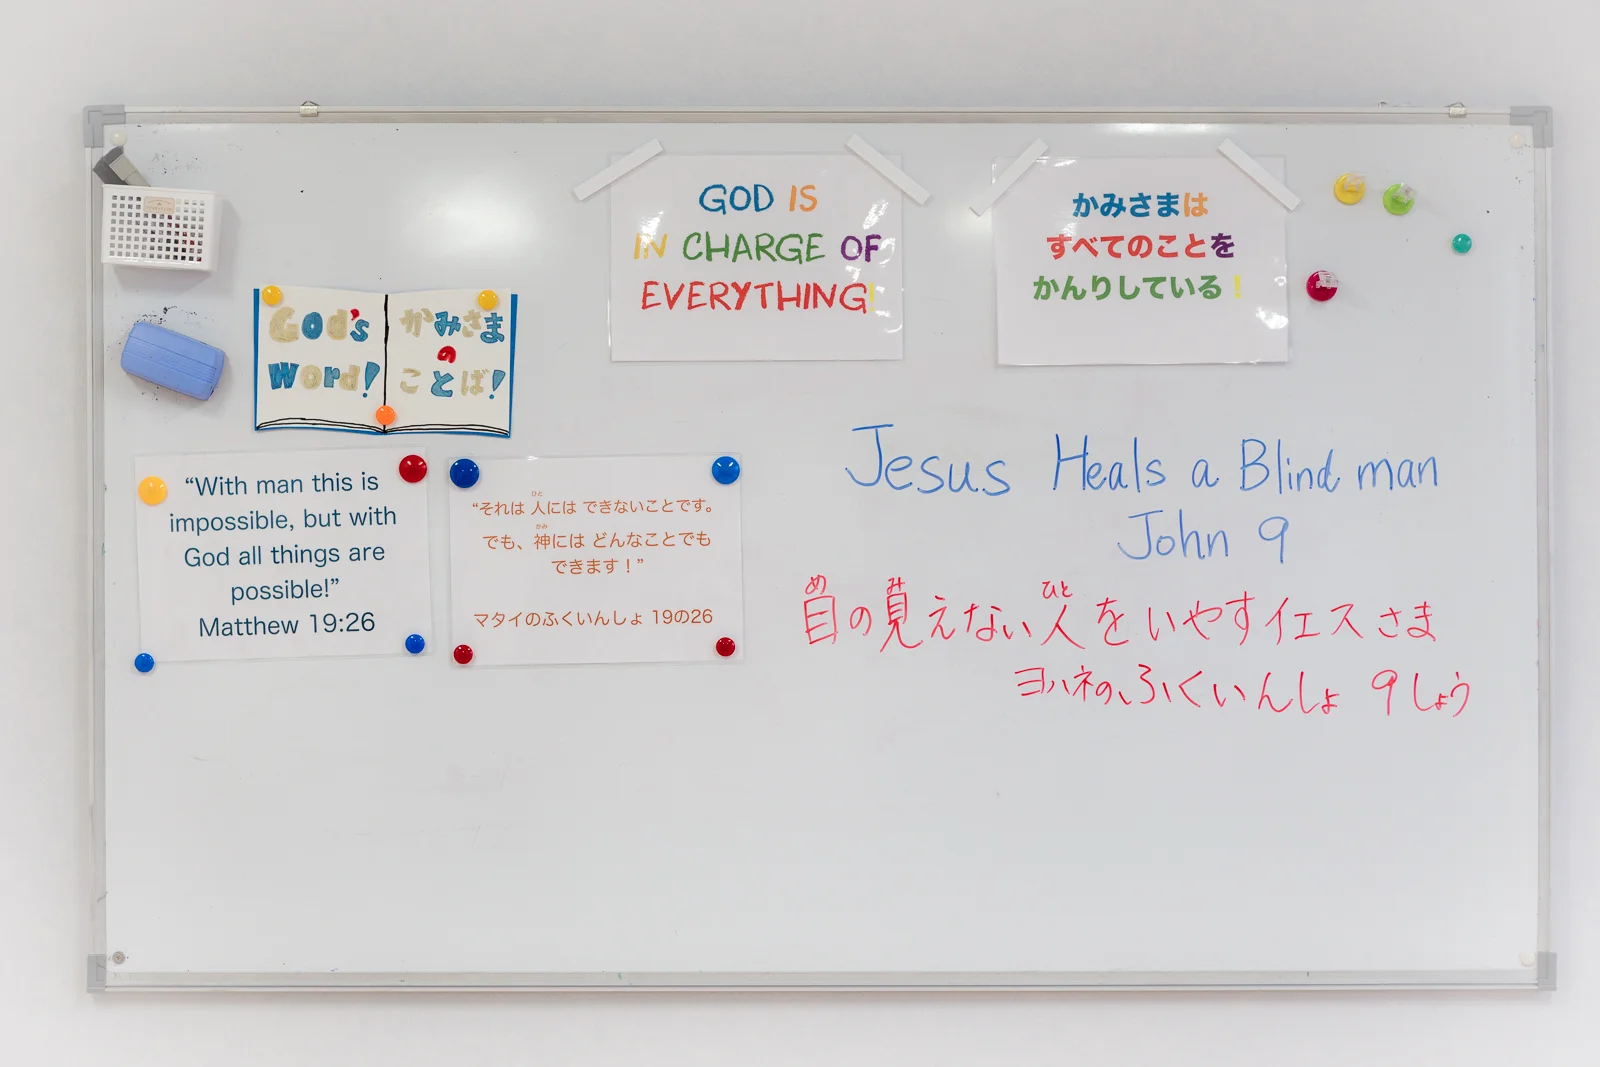 GOD IS
IN CHARGE OF
EVERYTHING!
かみさまは
すべてのことを
かんりしている！
God's
Word!
かみさま
の
ことば!
“With man this is
impossible, but with
God all things are
possible!”
Matthew 19:26
ひと
“それは 人には できないことです。
かみ
でも、神には どんなことでも
できます！”
マタイのふくいんしょ 19の26
Jesus Heals a Blind man
John 9
め み ひと
目の見えない人をいやすイエスさま
ヨハネの、ふくいんしょ 9しょう